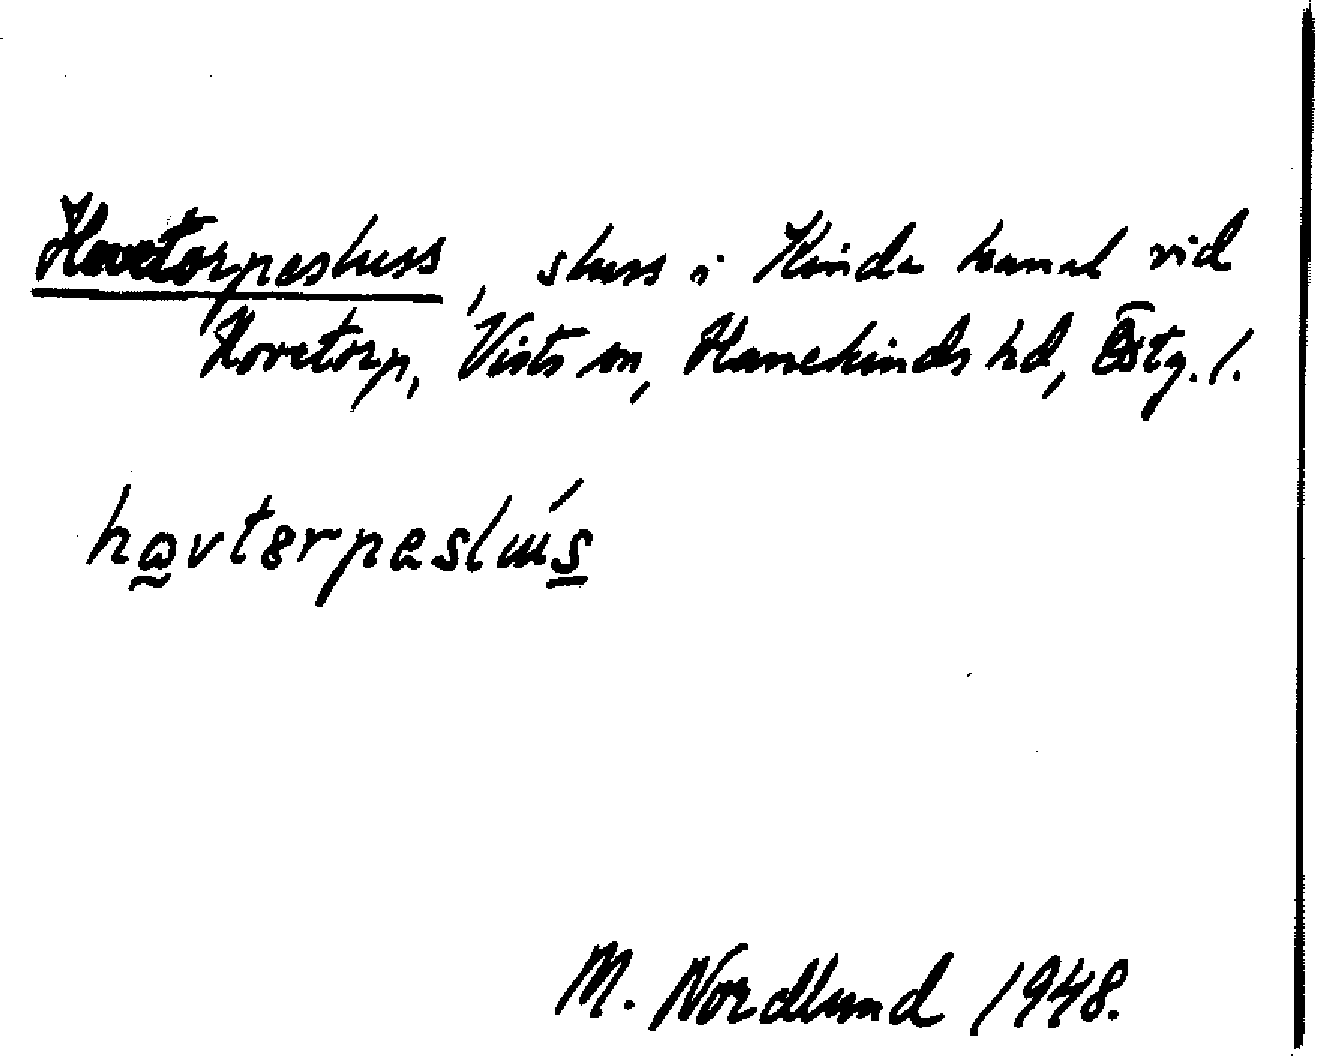 Hovetorpasluss, sluss i Kinda kanal vid
Hovetorp, Vists sn, Hanekinds hd, Östg. l.
hovtɵrpaslus
M. Nordlund 1948.